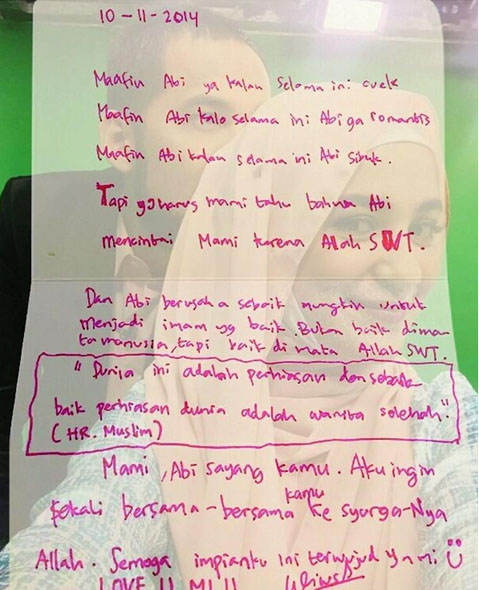 10-11-2014
Maafin Abi ya kalau selama ini cuek
Maafin Abi kalo selama ini Abi ga romantis
Maafin Abi kalau selama ini Abi sibuk.
Tapi yg harus mami tahu bahwa Abi
mencintai Mami karena Allah SWT.
Dan Abi berusaha sebaik mungkin untuk
menjadi imam yg baik. Bukan baik dima
ta manusia, tapi baik di mata Allah SWT.
"Dunia ini adalah perhiasan dan sebaik
baik perhiasan dunia adalah wanita solehah"
(HR. Muslim)
Mami, Abi sayang kamu. Aku ingin
sekali bersama-bersama kamu ke syurga-Nya
Allah. Semoga impianku ini terwujud ya mi
LOVE U MI !!